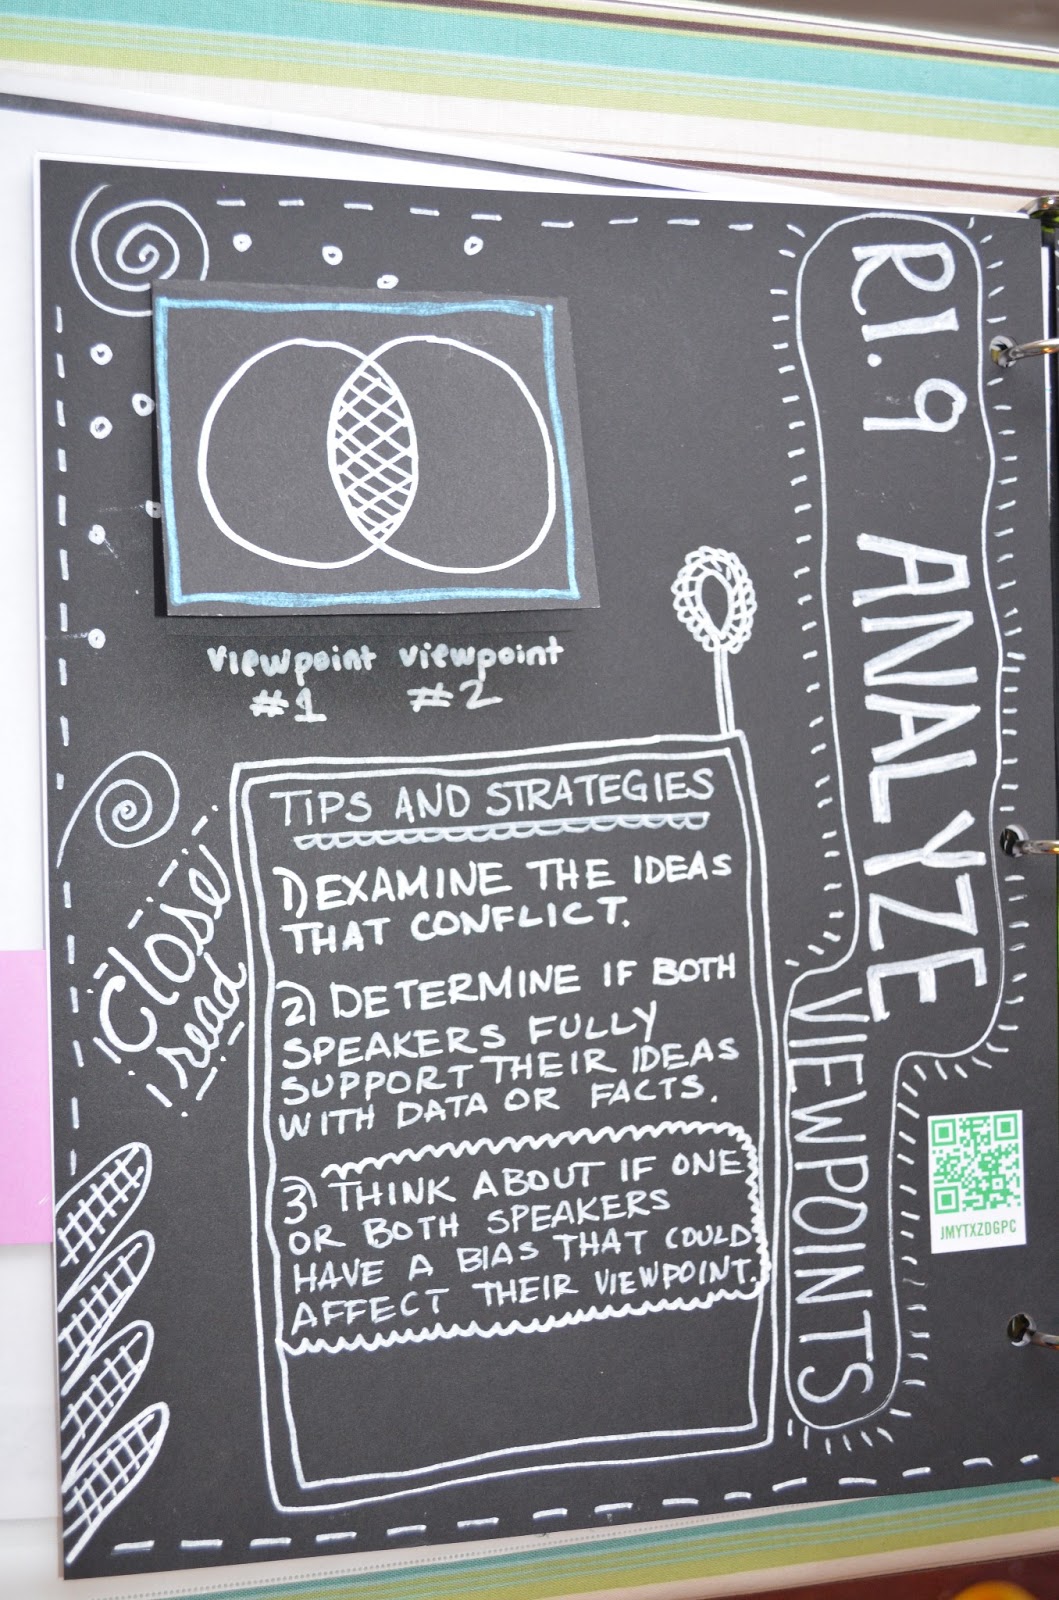 RI.9 ANALYZE
VIEWPOINTS
Viewpoint #1
Viewpoint #2
Close
read
TIPS AND STRATEGIES
1) EXAMINE THE IDEAS
THAT CONFLICT.
2) DETERMINE IF BOTH
SPEAKERS FULLY
SUPPORT THEIR IDEAS
WITH DATA OR FACTS.
3) THINK ABOUT IF ONE
OR BOTH SPEAKERS
HAVE A BIAS THAT COULD
AFFECT THEIR VIEWPOINT.
JMYTXZDGPC